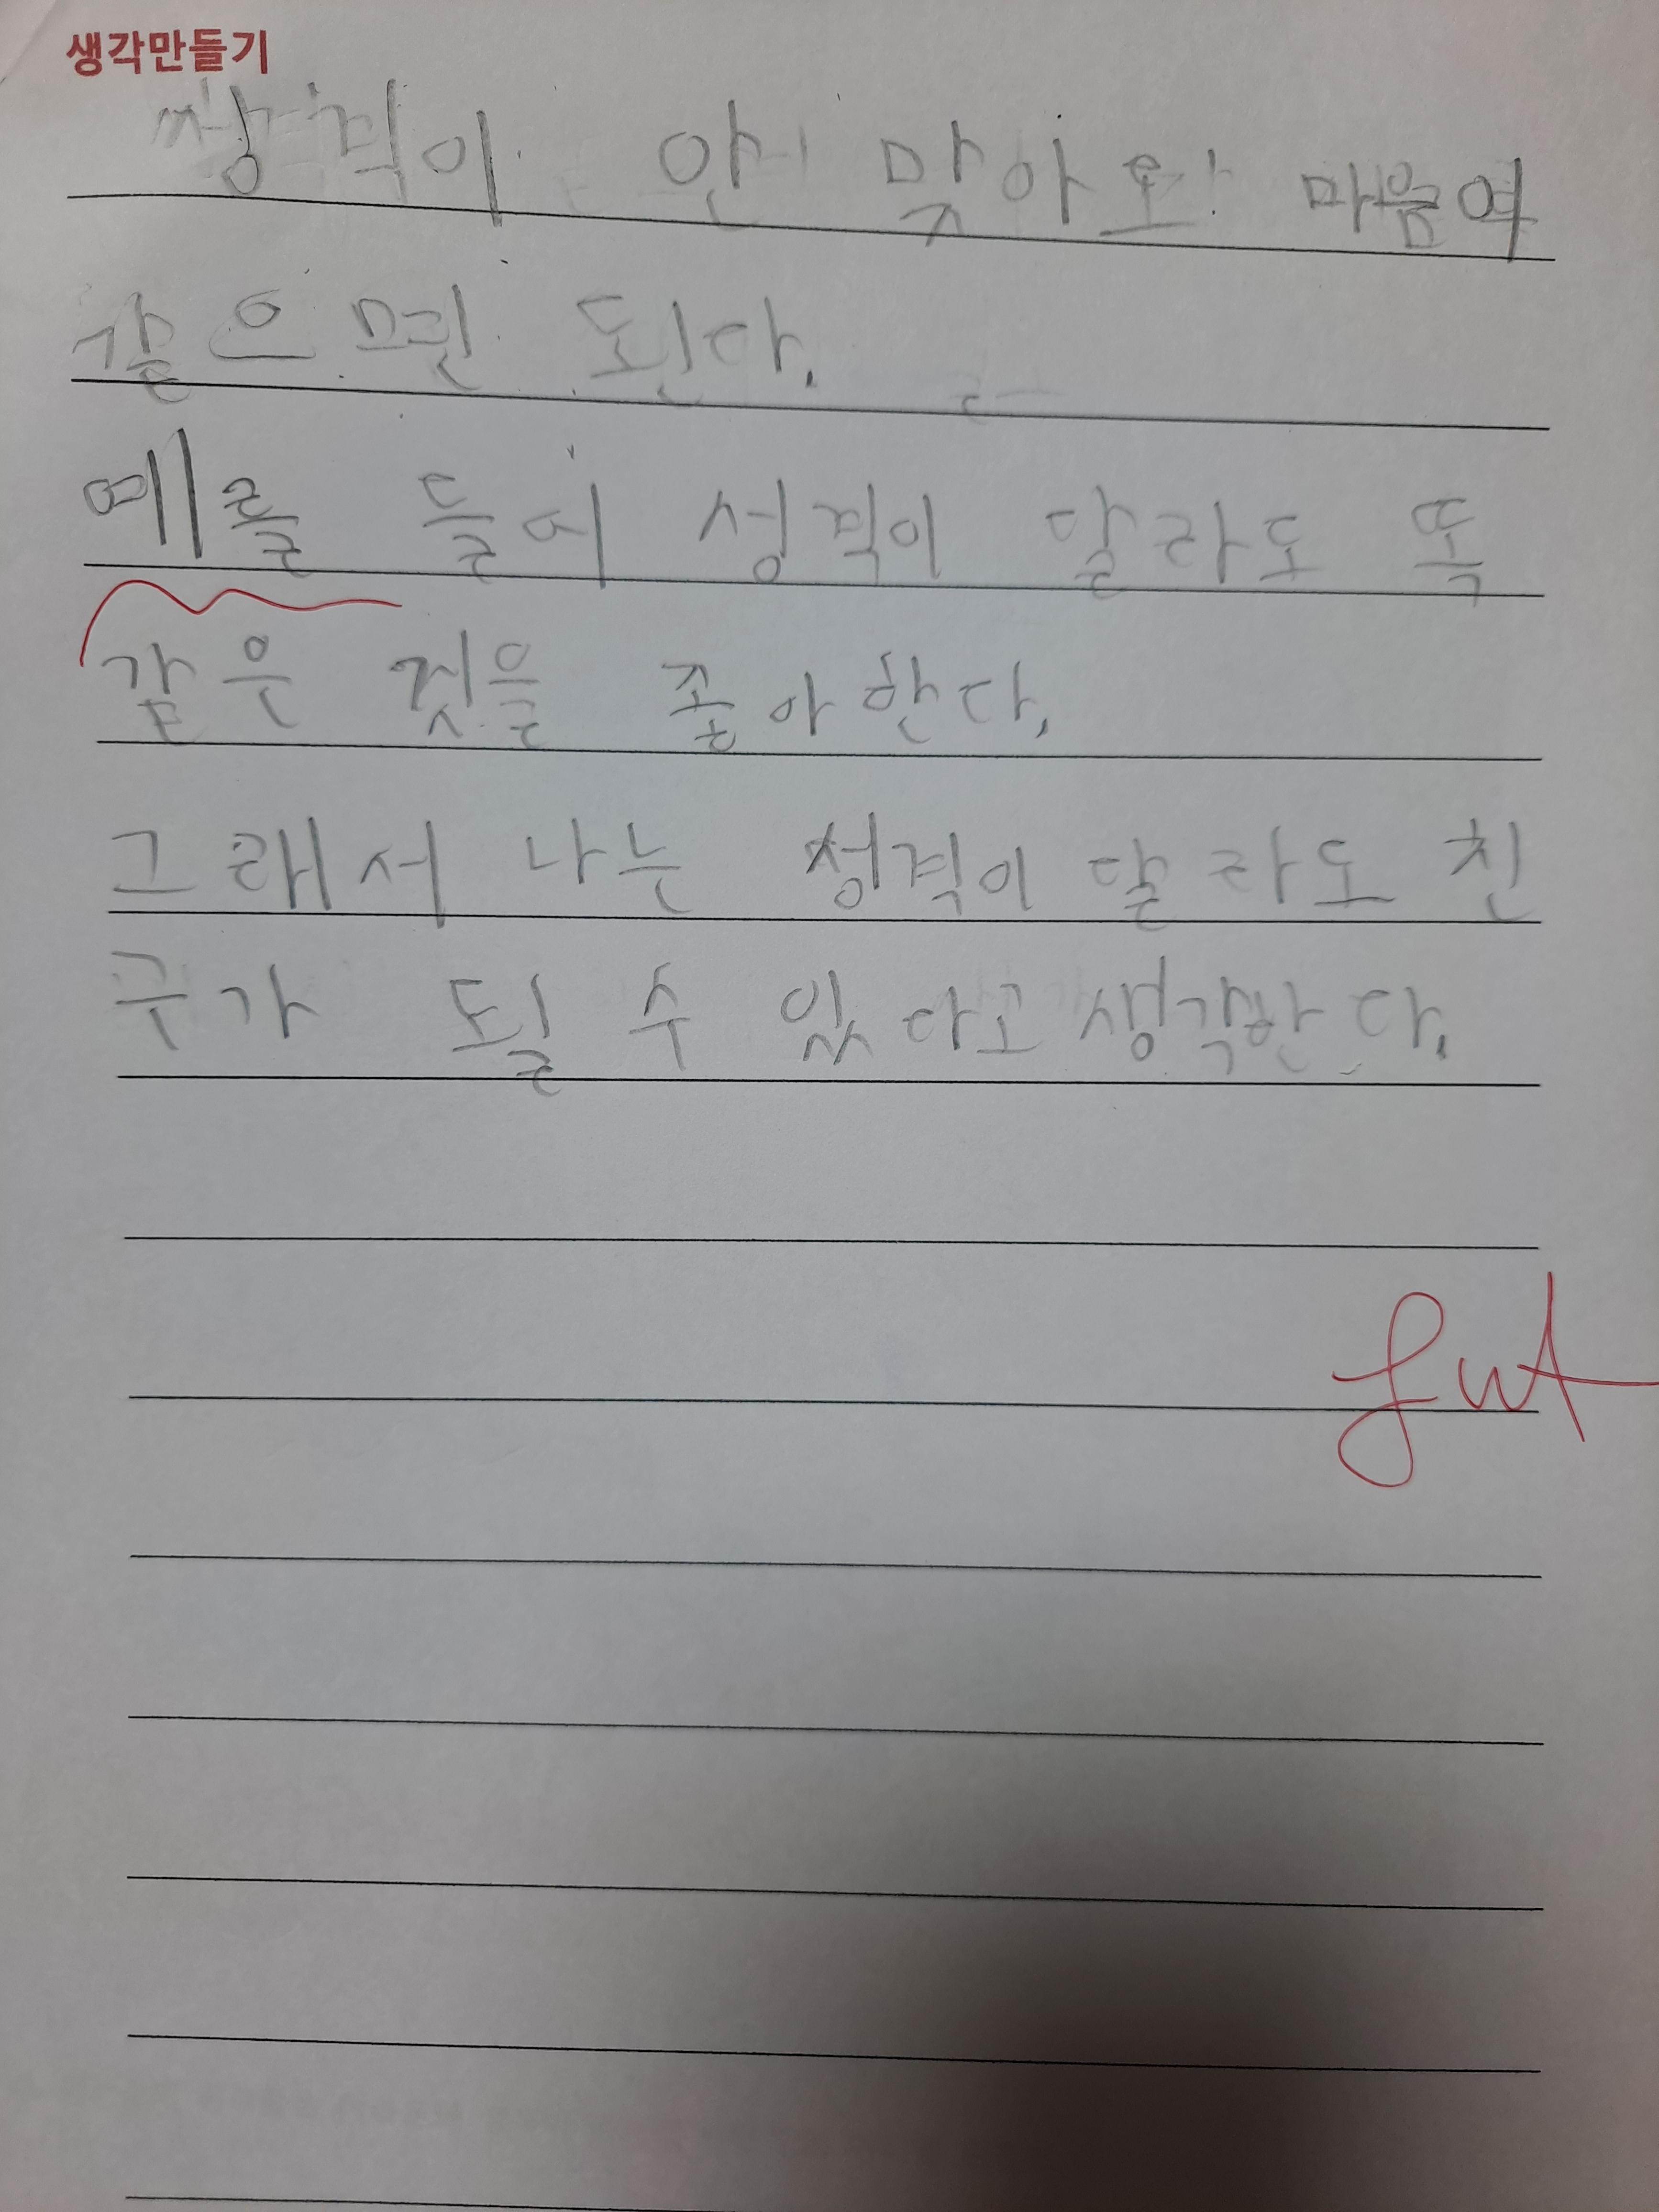 생각만들기
쌍격이 안 맞아도 마음이
같으면 된다.
예를 들어 성격이 달라도 똑
같은 것을 좋아한다.
그래서 나는 성격이 달라도 친
구가 될 수 있다고 생각한다.